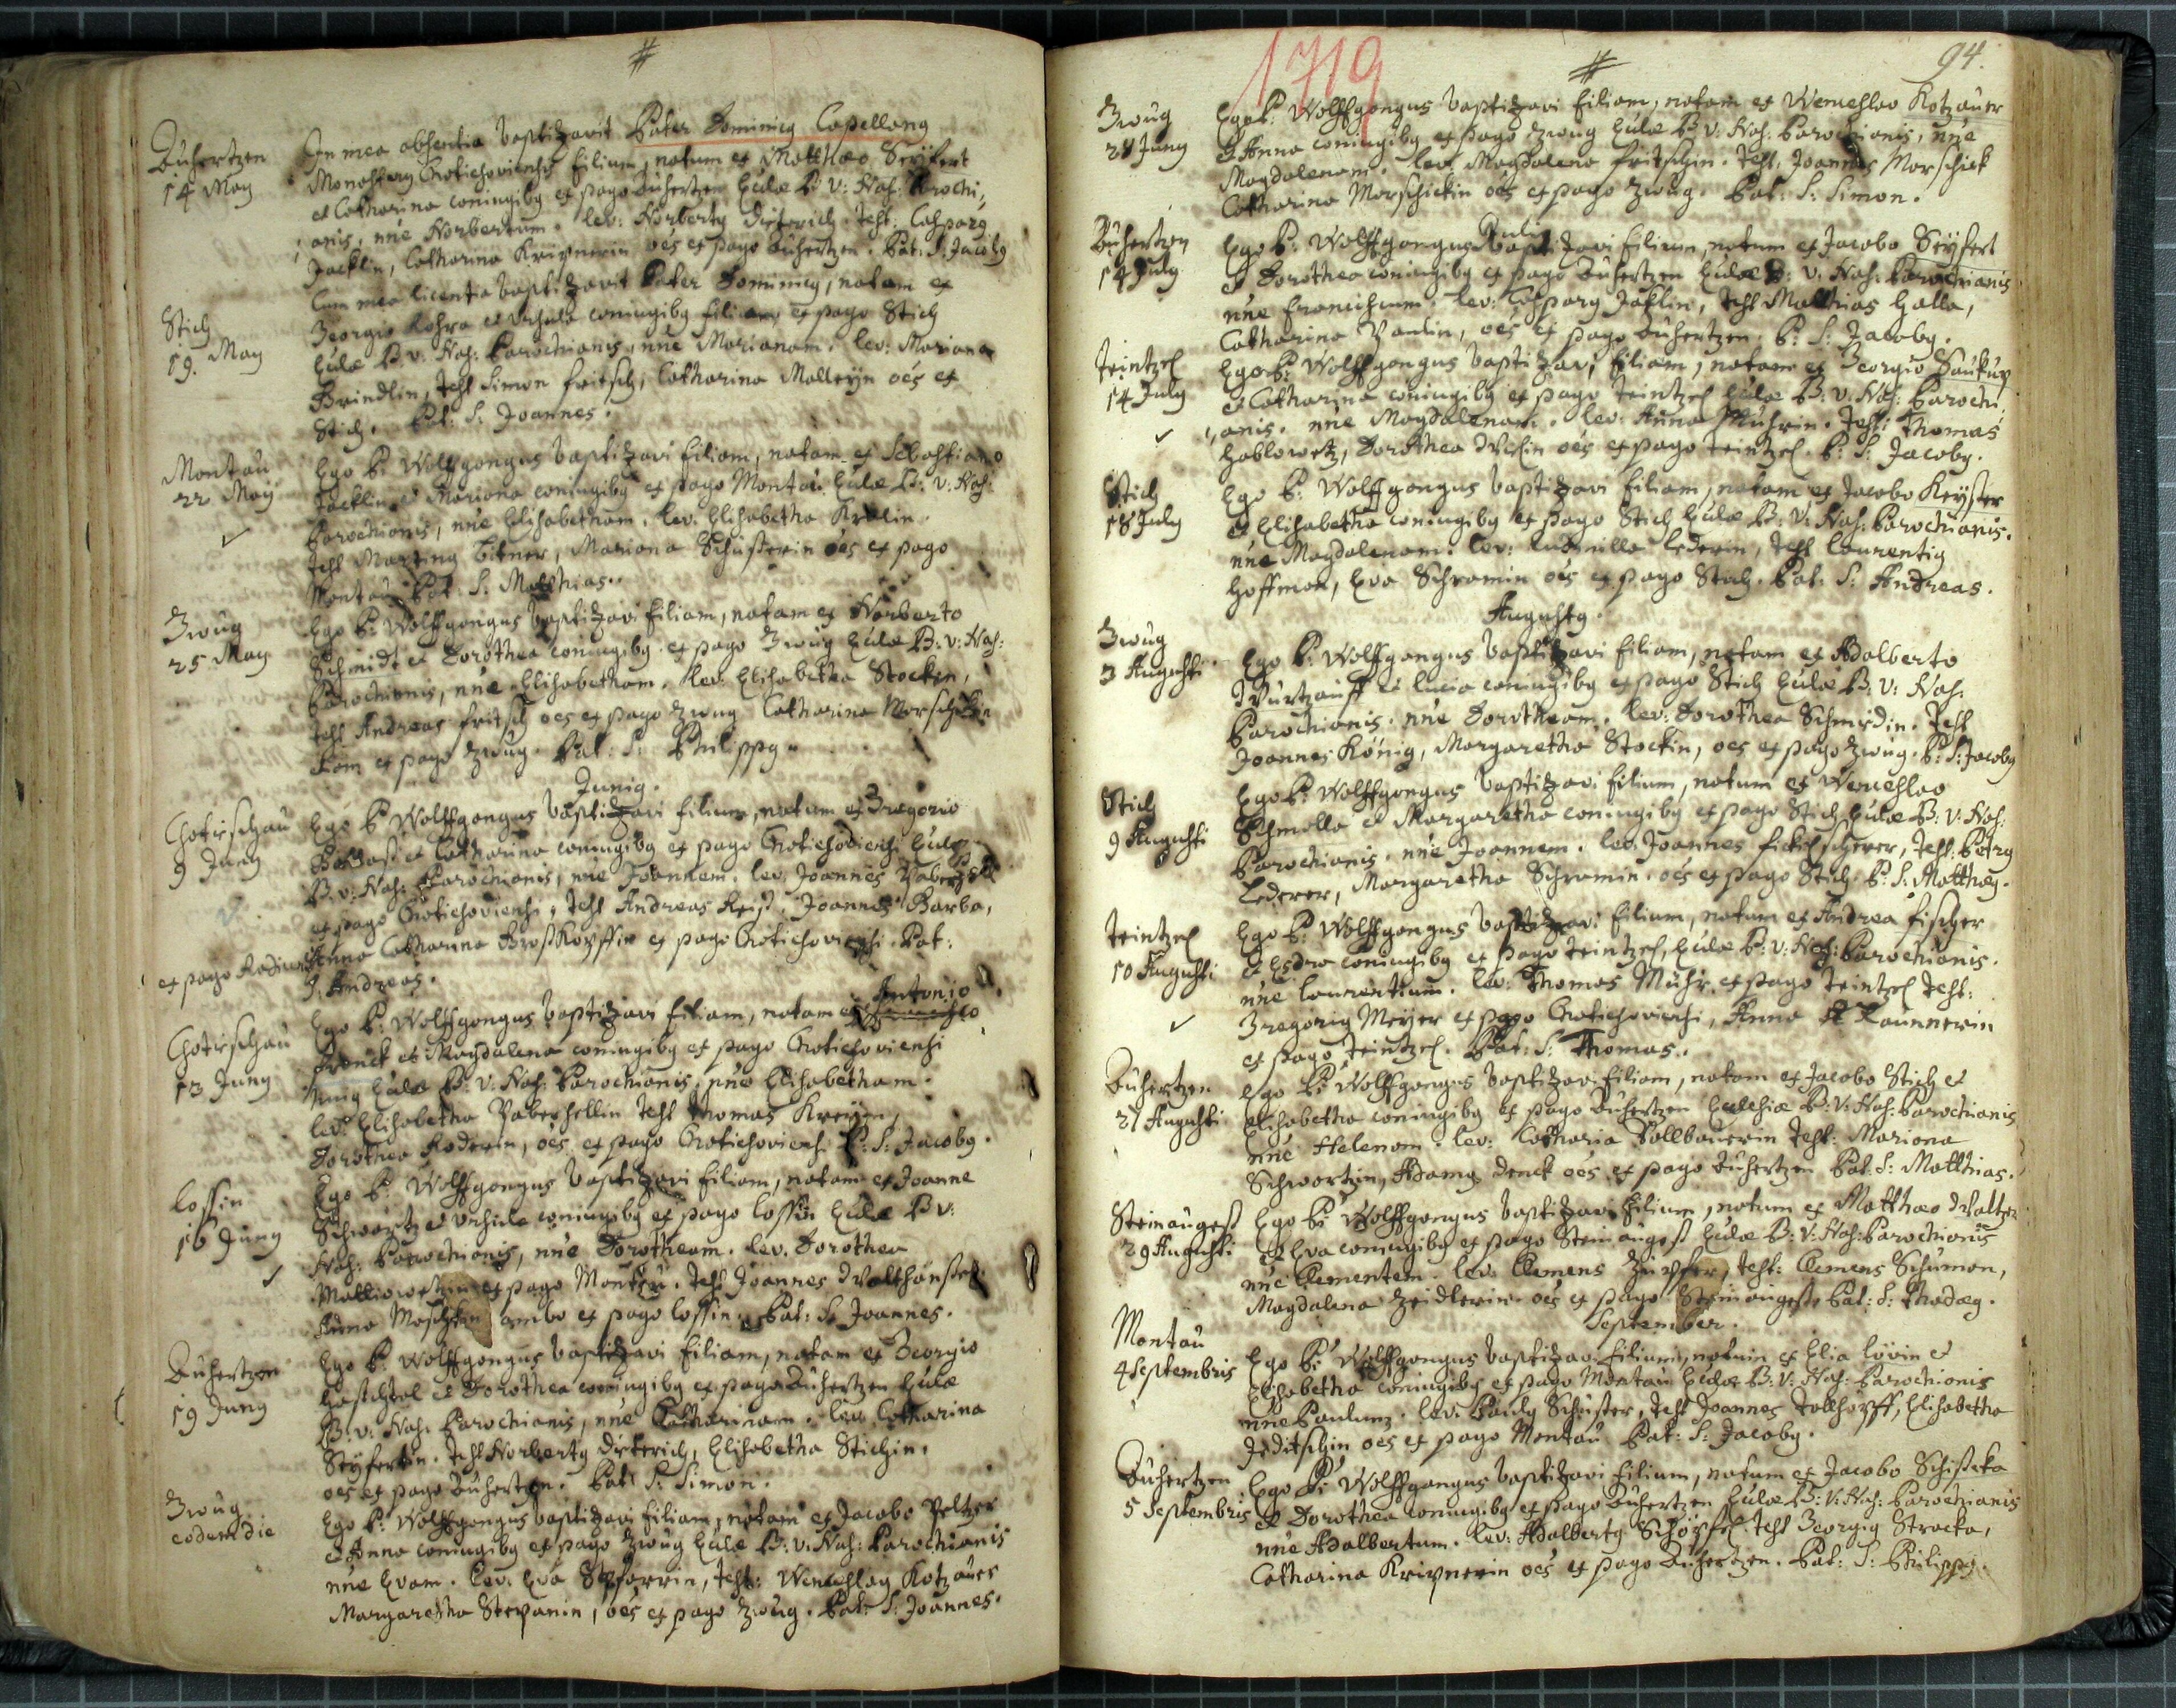 #
Buhertzen
14 May
In mea absentia baptizavit Pater Dominicg Capellang
Monastery Chotieschoviensis filium, natum ex Matthaeo Seÿfert
et Catharina coniugibg ex pago Buhertzen Eulae B: v: Nas: Parochi,,
anis, nn͞e Norbertum. lev: Norbertg Dieterich. Test: Casparg
Jacklin, Catharina Kripnerin oes ex pago Buhertzen. Pat: S: Jacobg
Stich
19. May
Cum mea licentia baptizavit Pater Dominicg, natam ex
Georgio et Ursula coniugibg filiam, ex pago Stich
Eulae B: v: Nas: Parochianis, nn͞e Marianam. lev: Mariana
Brindlin, Test Simon fritsch, Catharina oes ex
Stich. Pat: S: Joannes.
Montau
22 May
Ego P: Wolffgangus baptizavi filiam, natam ex Sebastiano
Jacklin et Mariana coniugibg ex pago Montau Eulae B: v: Nas:
Parochianis, nn͞e Elisabetham. lev: Elisabetha Kralin.
Test Marting Bitner, Mariana Schusterin oes ex pago
Montau Pat: S: Matthias.
Zwug
25 May
Ego P: Wolffgangus baptizavi filiam, natam ex Norberto
Schmidt et Dorothea coniugibg ex pago Zwug Eulae B: v: Nas:
Parochianis, nn͞e Elisabetham. lev: Elisabetha Stockin,
Test Andreas fritsch oes ex pago Zwug Catharina
ex pago Zwug. Pat: S: Philippg.
Junig.
Chotieschau
9 Juny
Ego P Wolffgangus baptizavi filium, natum ex Gregorio
et Catharina coniugibg ex pago Chotieschoviensi Eulae
B: v: Nas: Parochianis, nn͞e Joannem. lev: Joannes
ex pago Chotieschoviensi, Test Andreas Reiß, Joannes Barba,
Anna Catharina ex pago Chotieschoviensi. Pat:
S: Andreas.
Chotieschau
13 Juny
Ego P: Wolffgangus baptizavi filiam, natam ex Antonio
Franck et Magdalena coniugibg ex pago Chotieschoviensi
Eulae B: v: Nas: Parochianis, nn͞e Elisabetham.
lev: Elisabetha Paberhellin Test Thomas
Dorothea Koderin, oes ex pago Chotieschoviensi P: S: Jacobg.
Lossin
16 Juny
Ego P: Wolffgangus baptizavi filiam, natam ex Joanne
Schwartz et Ursula coniugibg ex pago Lossin Eulae B: v:
Nas: Parochianis, nn͞e Dorotheam. lev: Dorothea
ex pago Montau. Test Joannes
Anna ambo ex pago Lossin. Pat: S. Joannes.
Buhertzen
19 Juny
Ego P: Wolffgangus baptizavi filiam, natam ex Georgio
et Dorothea coniugibg ex pago Buhertzen Eulae
B: v: Nas: Parochianis, nn͞e Catharinam. lev: Catharina
Seÿfertin. Test Norbertg Dieterich, Elisabetha Stichin.
oes ex pago Buhertzen. Pat: S: Simon.
Zwug
eodem die
Ego P: Wolffgangus baptizavi filiam, natam ex Jacobo Peltzer
et Anna coniugibg ex pago Zwug Eulae B: v: Nas: Parochianis
nn͞e Evam. Lev: Eva Test: Wenceslag Kotzauer
Margaretha Stepanin, oes ex pago Zwug. Pat: S: Joannes.
1719
#
94.
Zwug
28 Juny
Ego P: Wolffgangus baptizavi filiam, natam ex Wenceslao Kotzauer
et Anna coniugibg ex pago Zwug Eulae B: v: Nas: Parochianis, nn͞e
Magdalenam. lev: Magdalena fritschin. Test: Joannes Morschick
Catharina Morschickin oes ex pago Zwug. Pat: S: Simon.
Julig
Buhertzen
14 July
Ego P: Wolffgangus baptizavi filium, natum ex Jacobo Seÿfert
et Dorothea coniugibg ex pago Buhertzen Eulae B: v: Nas: Parochianis
nn͞e Franciscum. lev: Casparg Jaklin, Test Matthias Galla,
Catharina Paulin, oes ex pago Buhertzen. P: S: Jacobg.
Teintzel
14 July
Ego P: Wolffgangus baptizavi filiam, natam ex Georgio Saukup
et Catharina coniugibg ex pago Teintzel Eulae B: v: Nas: Parochi,,
anis. nn͞e Magdalenam. lev: Anna Muhrin. Test: Thomas
Hablowetz, Dorothea oes ex pago Teintzel. P: S: Jacobg.
Stich
18 July
Ego P: Wolffgangus baptizavi filiam, natam ex Jacobo Keÿser
et Elisabetha coniugibg ex pago Stich Eulae B: v: Nas: Parochianis.
nn͞e Magdalenam. lev: Ludmilla Lederin, Test Laurentig
Hoffman, Eva Schramin oes ex pago Stich. Pat: S: Andreas.
Augustg.
Zwug
3 Augusti
Ego P: Wolffgangus baptizavi filiam, natam ex Adalberto
et Lucia coniugibg ex pago Stich Eulae B: v: Nas:
Parochianis. nn͞e Dorotheam. lev: Dorothea Schmidin. Test
Joannes König, Margaretha Stockin, oes ex pago Zwug. P: S: Jacobg
Stich
9 Augusti
Ego P: Wolffgangus baptizavi filium, natum ex Wenceslao
Schmolla et Margaretha coniugibg ex pago Stich Eulae B: v: Nas:
Parochianis. nn͞e Joannem. lev: Joannes Test: Petrg
Lederer, Margaretha Schramin. oes ex pago Stich. P: S: Matthaeg.
Teintzel
10 Augusti
Ego P: Wolffgangus baptizavi filium, natum ex Andrea fischer
et coniugibg ex pago Teintzel, Eulae B: v: Nas: Parochianis.
nn͞e Laurentium. lev: Thomas Muhr, ex pago Teintzel Test:
Gregorig Meÿer ex pago Chotieschoviensi, Anna
ex pago Teintzel. Pat: S: Thomas.
Buhertzen
27 Augusti
Ego P: Wolffgangus baptizavi filiam, natam ex Jacobo Stich et
Elisabetha coniugibg ex pago Buhertzen Ecclesiae B: v: Nas: Parochianis
nn͞e Helenam. lev: Catharina Test: Mariana
Schwartzin, Adamg Denck oes ex pago Buhertzen Pat: S: Matthias.
Steinaugest
29 Augusti
Ego P: Wolffgangus baptizavi filium, natum ex Matthaeo
et Eva coniugibg ex pago Steinaugest Eulae B: v: Nas: Parochianis
nn͞e Clementem. lev: Clemens Test: Clemens Schuman,
Magdalena Zeidlerin. oes ex pago Steinaugest Pat: S: Thadaeg.
September.
Montau
4 Septembris
Ego P: Wolffgangus baptizavi filium, natum ex Elia et
Elisabetha coniugibg ex pago Montau Eulae B: v: Nas: Parochianis
nn͞e Paulum. lev: Paulg Schuster, Test Joannes Elisabetha
oes ex pago Montau Pat: S: Jacobg.
Buhertzen
5 Septembris
Ego P: Wolffgangus baptizavi filium, natum ex Jacobo
et Dorothea coniugibg ex pago Buhertzen Eulae B: v: Nas: Parochianis
nn͞e Adalbertum. lev: Adalbertg Test Georgig Stracka,
Catharina Kripnerin oes ex pago Buhertzen. Pat: S: Philippg.